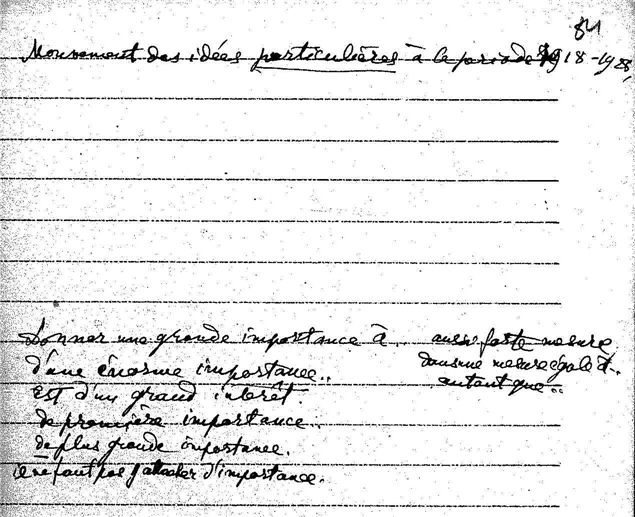 84
Mouvement des idées particulières à la periode 1918-1928,
Donner une grande importance à..
d'une énorme importance..
Est d'un grand interêt.
de première importance..
de plus grande importance.
il ne faut pas attacher d'importance.
aussi forte mesure
dans une mesure égale à..
autant que..